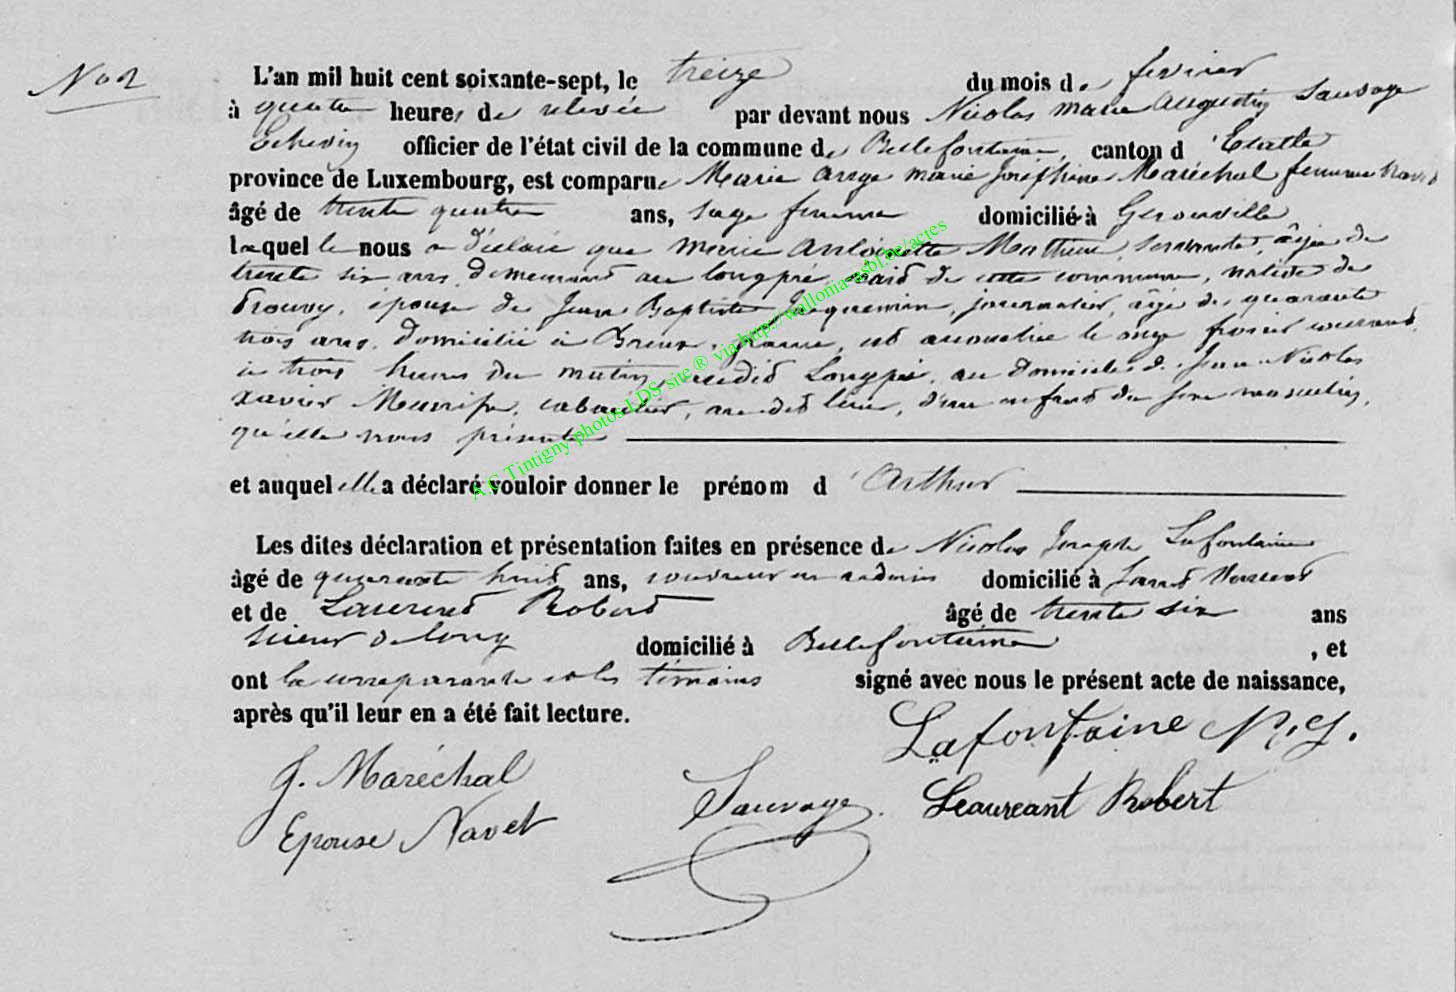 No 2
L'an mil huit cent soixante-sept, le treize du mois de fevrier
à quatre heures de relevée par devant nous Nicolas Marie Augustin Sauvage
Echevin officier de l'état civil de la commune de Bellefontaine, canton d'Etalle
province de Luxembourg, est comparue Marie Ange Marie Joséphine Maréchal femme Navet
âgé de trente quatre ans, sage femme domicilié à Gérouville
laquelle nous a déclaré que Marie Antoinette Mathieu, servante, âgée de
trente six ans, demeurant au Longpré, said de cette commune, native de
Prouvy, épouse de Jean Baptiste Jaquemin, journalier, âgé de quarante
trois ans, domicilié à Breux, france, est accouchée le onze fevrier courant
à trois heures du matin, audit Longpré, au domicile de Jean Nicolas
Xavier cabaretier, audit lieu, d'un enfant du sexe masculin,
qu'elle nous présente
et auquel elle a déclaré vouloir donner le prénom d'Arthur
Les dites déclaration et présentation faites en présence de Nicolas Joseph Lafontaine
âgé de quarante huit ans, couvreur en domicilié à
et de Laurent Robert âgé de trente six ans
scieur de long domicilié à Bellefontaine, et
ont la comparante et les témoins signé avec nous le présent acte de naissance,
après qu'il leur en a été fait lecture.
Lafontaine N.J.
J. Maréchal
Sauvage. Leaureant Robert
Epouse Navet
A.C Tintigny photos LDS site ® via http://wallonia-asbl.be/actes